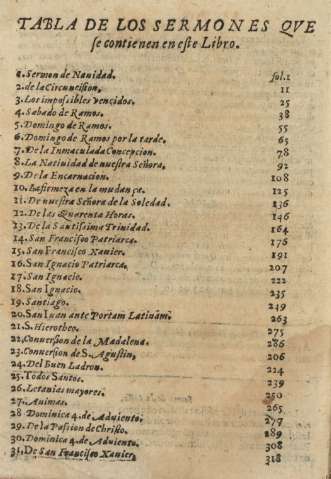 TABLA DE LOS SERMONES QVE
se contienen en este Libro.
1. Sermon de Nauidad. fol. 1
2. de la Circuncision. 11
3. Los impossibles vencidos. 25
4. Sabado de Ramos. 38
5. Domingo de Ramos. 55
6. Domingo de Ramos por la tarde. 65
7. De la Inmaculada Concepcion. 78
8. La Natiuidad de nuestra Señora. 92
9. De la Encarnacion. 108
10. La firmeza en la mudança. 125
11. De nuestra Señora de la Soledad. 136
12. De las Quarenta Horas. 146
13. De la Santissima Trinidad. 164
14. San Francisco Patriarca. 176
15. San Francisco Xauier. 191
16. San Ignacio Patriarca. 207
17. San Ignacio. 222
18. San Ignacio. 235
19. Santiago. 249
20. San Iuan ante Portam Latinam. 263
21. S. Hierotheo. 275
22. Conuersion de la Madalena. 286
23. Conuersion de S. Agustin. 206
24. Del Buen Ladron. 224
25. Todos Santos. 239
26. Letanias mayores. 250
27. Animas. 265
28 Dominica 4. de Aduiento. 277
29. De la Passion de Christo. 289
30. Dominica 4. de Aduiento. 308
31. De San Francisco Xauier. 318